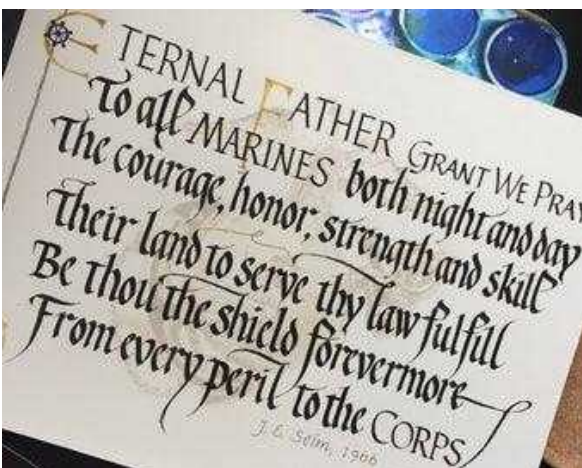 ETERNAL FATHER GRANT WE PRAY
To all MARINES both night and day
The courage, honor, strength and skill
Their land to serve thy law fulfill
Be thou the shield forevermore
From every peril to the CORPS
J. E. Seim, 1966